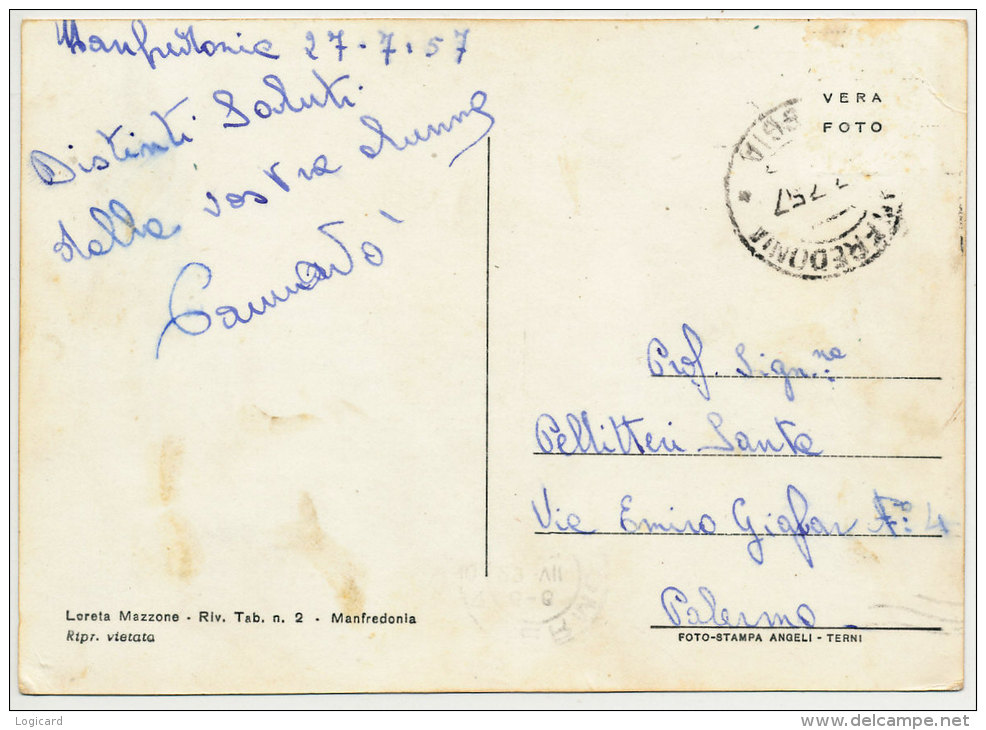 Manfredonia 27.7.57
Distinti Saluti
dalla vostra alunna
VERA
FOTO
FREDONIA
7 57
Prof. Sign.na
Pellitteri Santa
Via Emiro Giafar F° 4
Palermo
Loreta Mazzone - Riv. Tab. n. 2 - Manfredonia
Ripr. vietata
FOTO-STAMPA ANGELI - TERNI
Logicard
www.delcampe.net